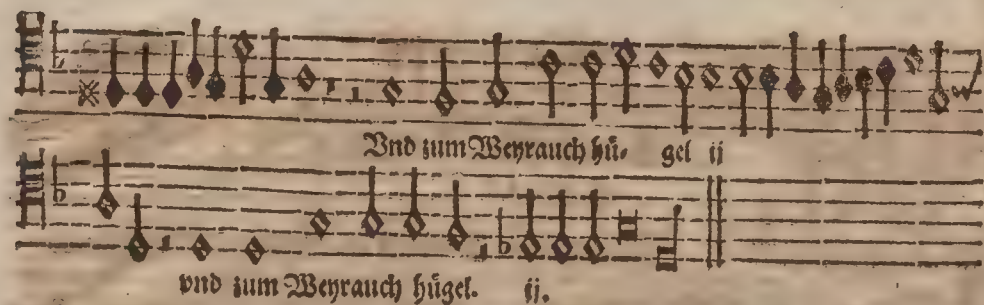 Vnd zum Weyrauch huͤ- gel ij
vnd zum Weyrauch huͤgel. ij.